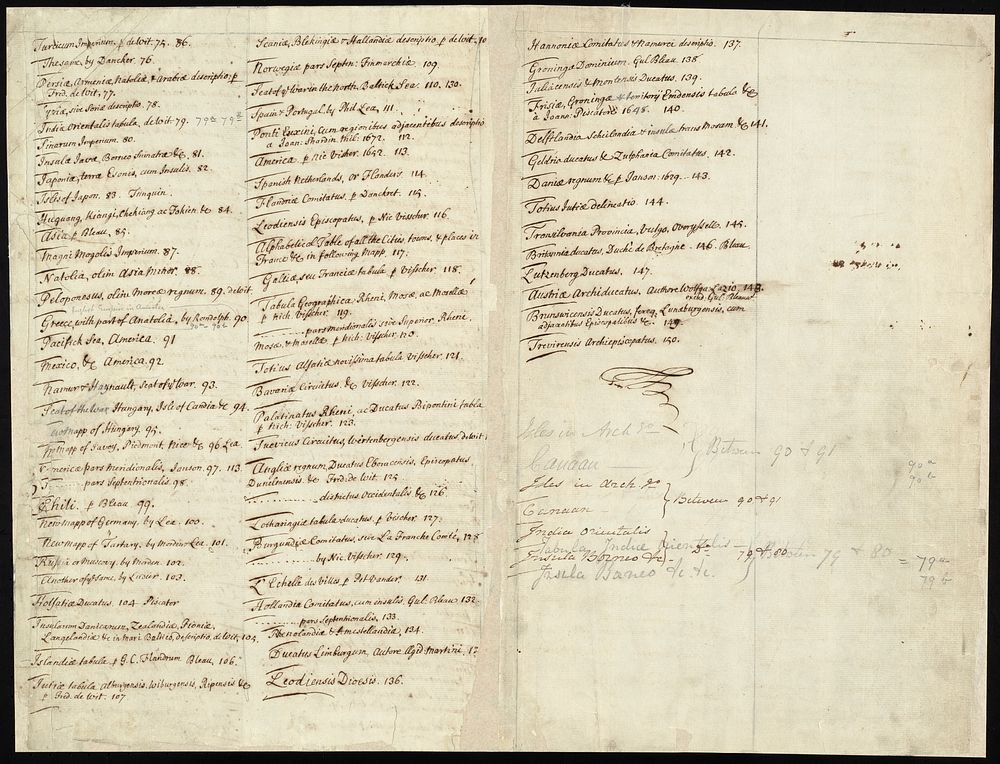 Turcicum Imperium, p de Wit. 75. 86.
The same, by Dancker. 76.
Persiæ, Armeniæ, Natoliæ, & Arabiæ descriptio, p
Fred. de Wit, 77.
Syria, sive Soria descriptio. 78.
India Orientalis tabula, de Wit. 79. 79a 79b
Sinarum Imperium. 80.
Insulæ Java, Borneo Sumatra &c. 81.
Japoniæ, terræ Esonis, cum Insulis. 82.
Isles of Japon. 83. Tunquin.
Huquang, Kiangsi, Chekiang ac Fokien &c 84.
Asia p Bleau, 85.
Magni Mogolis Imperium. 87.
Natolia, olim Asia minor. 88.
Peloponesus, olim Moreæ regnum. 89. de Wit
Turkish Empire in
Greece, with part of Anatolia, by Randolph. 90.
90a 90b
Pacifick Sea, America. 91
Mexico, &c America. 92
Namur & Haynault, Seat of ye War. 93.
Seat of the War Hungary, Isle of Candia &c 94.
Mapp of Hungary. 95.
Mapp of Savoy, Piedmont, Nice &c 96 Lea
Americæ pars Meridionalis, Sanson. 97. 113
pars Septentrionalis. 98.
Chili. p Bleau 99.
New mapp of Germany, by Lea. 100.
New mapp of Tartary, by Morden Lea. 101.
Russia or Muscovy, by Morden. 102.
Another of ye Same, by 103.
Holsatiæ Ducatus. 104. Piscator
Insularum Danicarum, Zealandiæ, Fioniæ,
Langelandiæ &c in mari Baltico, descriptio, de Wit, 105
Islandiæ tabula, p G. C. Flandrum Bleau, 106.
Jutiæ tabula Alburgensis, Wiburgensis, Ripensis &c
p Fred. de Wit. 107
Scaniæ, Blekingiæ & Hallandiæ descriptio p de Wit. 10
Norwegiæ pars Septen: Finmarchia 109.
Seat of ye War in the North, Baltick Sea 110, 130.
Spain & Portugal, by Phil Lea, 111.
Ponti Euxini, cum regionibus adjacentibus descriptio
a Joan: Shardin Mil: 1672. 112
America, p Nic Visher. 1652. 113.
Spanish Netherlands, or Flanders 114.
Flandriæ Comitatus. p Danckert. 115.
Leodiensis Episcopatus, p Nic Visscher. 116
Alphabetical Table of all the Cities, towns, & places in
France &c in following Mapp. 117.
Galliæ, seu Franciæ tabula p Visscher 118.
Tabula Geographica Rheni, Mosæ, ac Mosellæ
p Nich: Visscher. 119.
pars meridionalis sive Superior Rheni,
Mosæ, & Mosellæ p Nich: Visscher. 120.
Totius Alsatiæ novissima tabula Visscher. 121.
Bavariæ Circuitus, &c Visscher. 122.
Palatinatus Rheni, ac Ducatus Bipontini tabla
p Nich: Visscher. 123.
Suevicus Circuitus, Wirtenbergensis ducatus, de Wit
Angliæ regnum, Ducatus Eboracensis, Episcopatus
Dunelmensis &c Fred: de Wit 125
districtus Occidentalis &c 126
Lotharingiæ tabula ducatus, p Vischer. 127.
Burgundiæ Comitatus, sive La Franche Comté, 128
by Nic Visscher. 129.
L'Echelle des Villes p Pet Vander. 131.
Hollandiæ Comitatus, cum insulis, Gul. Bleau 132.
pars Septentrionalis, 133.
Rhenolandiæ & Amstellandiæ, 134.
Ducatus Limburgum, Autore Ægid. Martini, 13
Leodiensis Diœsis. 136.
Hannoniæ Comitatus & Namurci descriptio. 137.
Groningæ Dominium. Gul Bleau. 138
Juliacensis & Montensis Ducatus. 139.
Frisiæ, Groningæ & territorij Emdensis tabula &c
a Joan: Piscatore 1648. 140.
Delfflandia Schilandia & insulæ trans Mosam &c 141.
Geldria ducatus & Zutphania Comitatus. 142.
Daniæ regnum &c p Janson: 1629. 143.
Totius Jutiæ delineatio. 144.
Transilvania Provincia, vulgo, Overyssell. 145.
Britannia ducatus, Duché de Bretagne. 146. Bleau.
Lutzenberg Ducatus, 147.
Austriæ Archiducatus, Authore Wolfgā Lazio, 148.
excud: Gul: Bleau
Brunswicensis Ducatus, fereq Lunæburgensis, cum
adjacentibus Episcopatibus &c. 149.
Trevirensis Archiepiscopatus. 150.
Isles in Arch &c
Canaan
} Between 90 & 91
90a
90b
Isles in Arch &c
Canaan
} Between 90 & 91
Indiæ Orientalis
Tabula Indiæ Orientalis
Insula Borneo &c
Do 79 & 80
Insula Borneo &c &c.
} Between 79 & 80
= 79a
79b